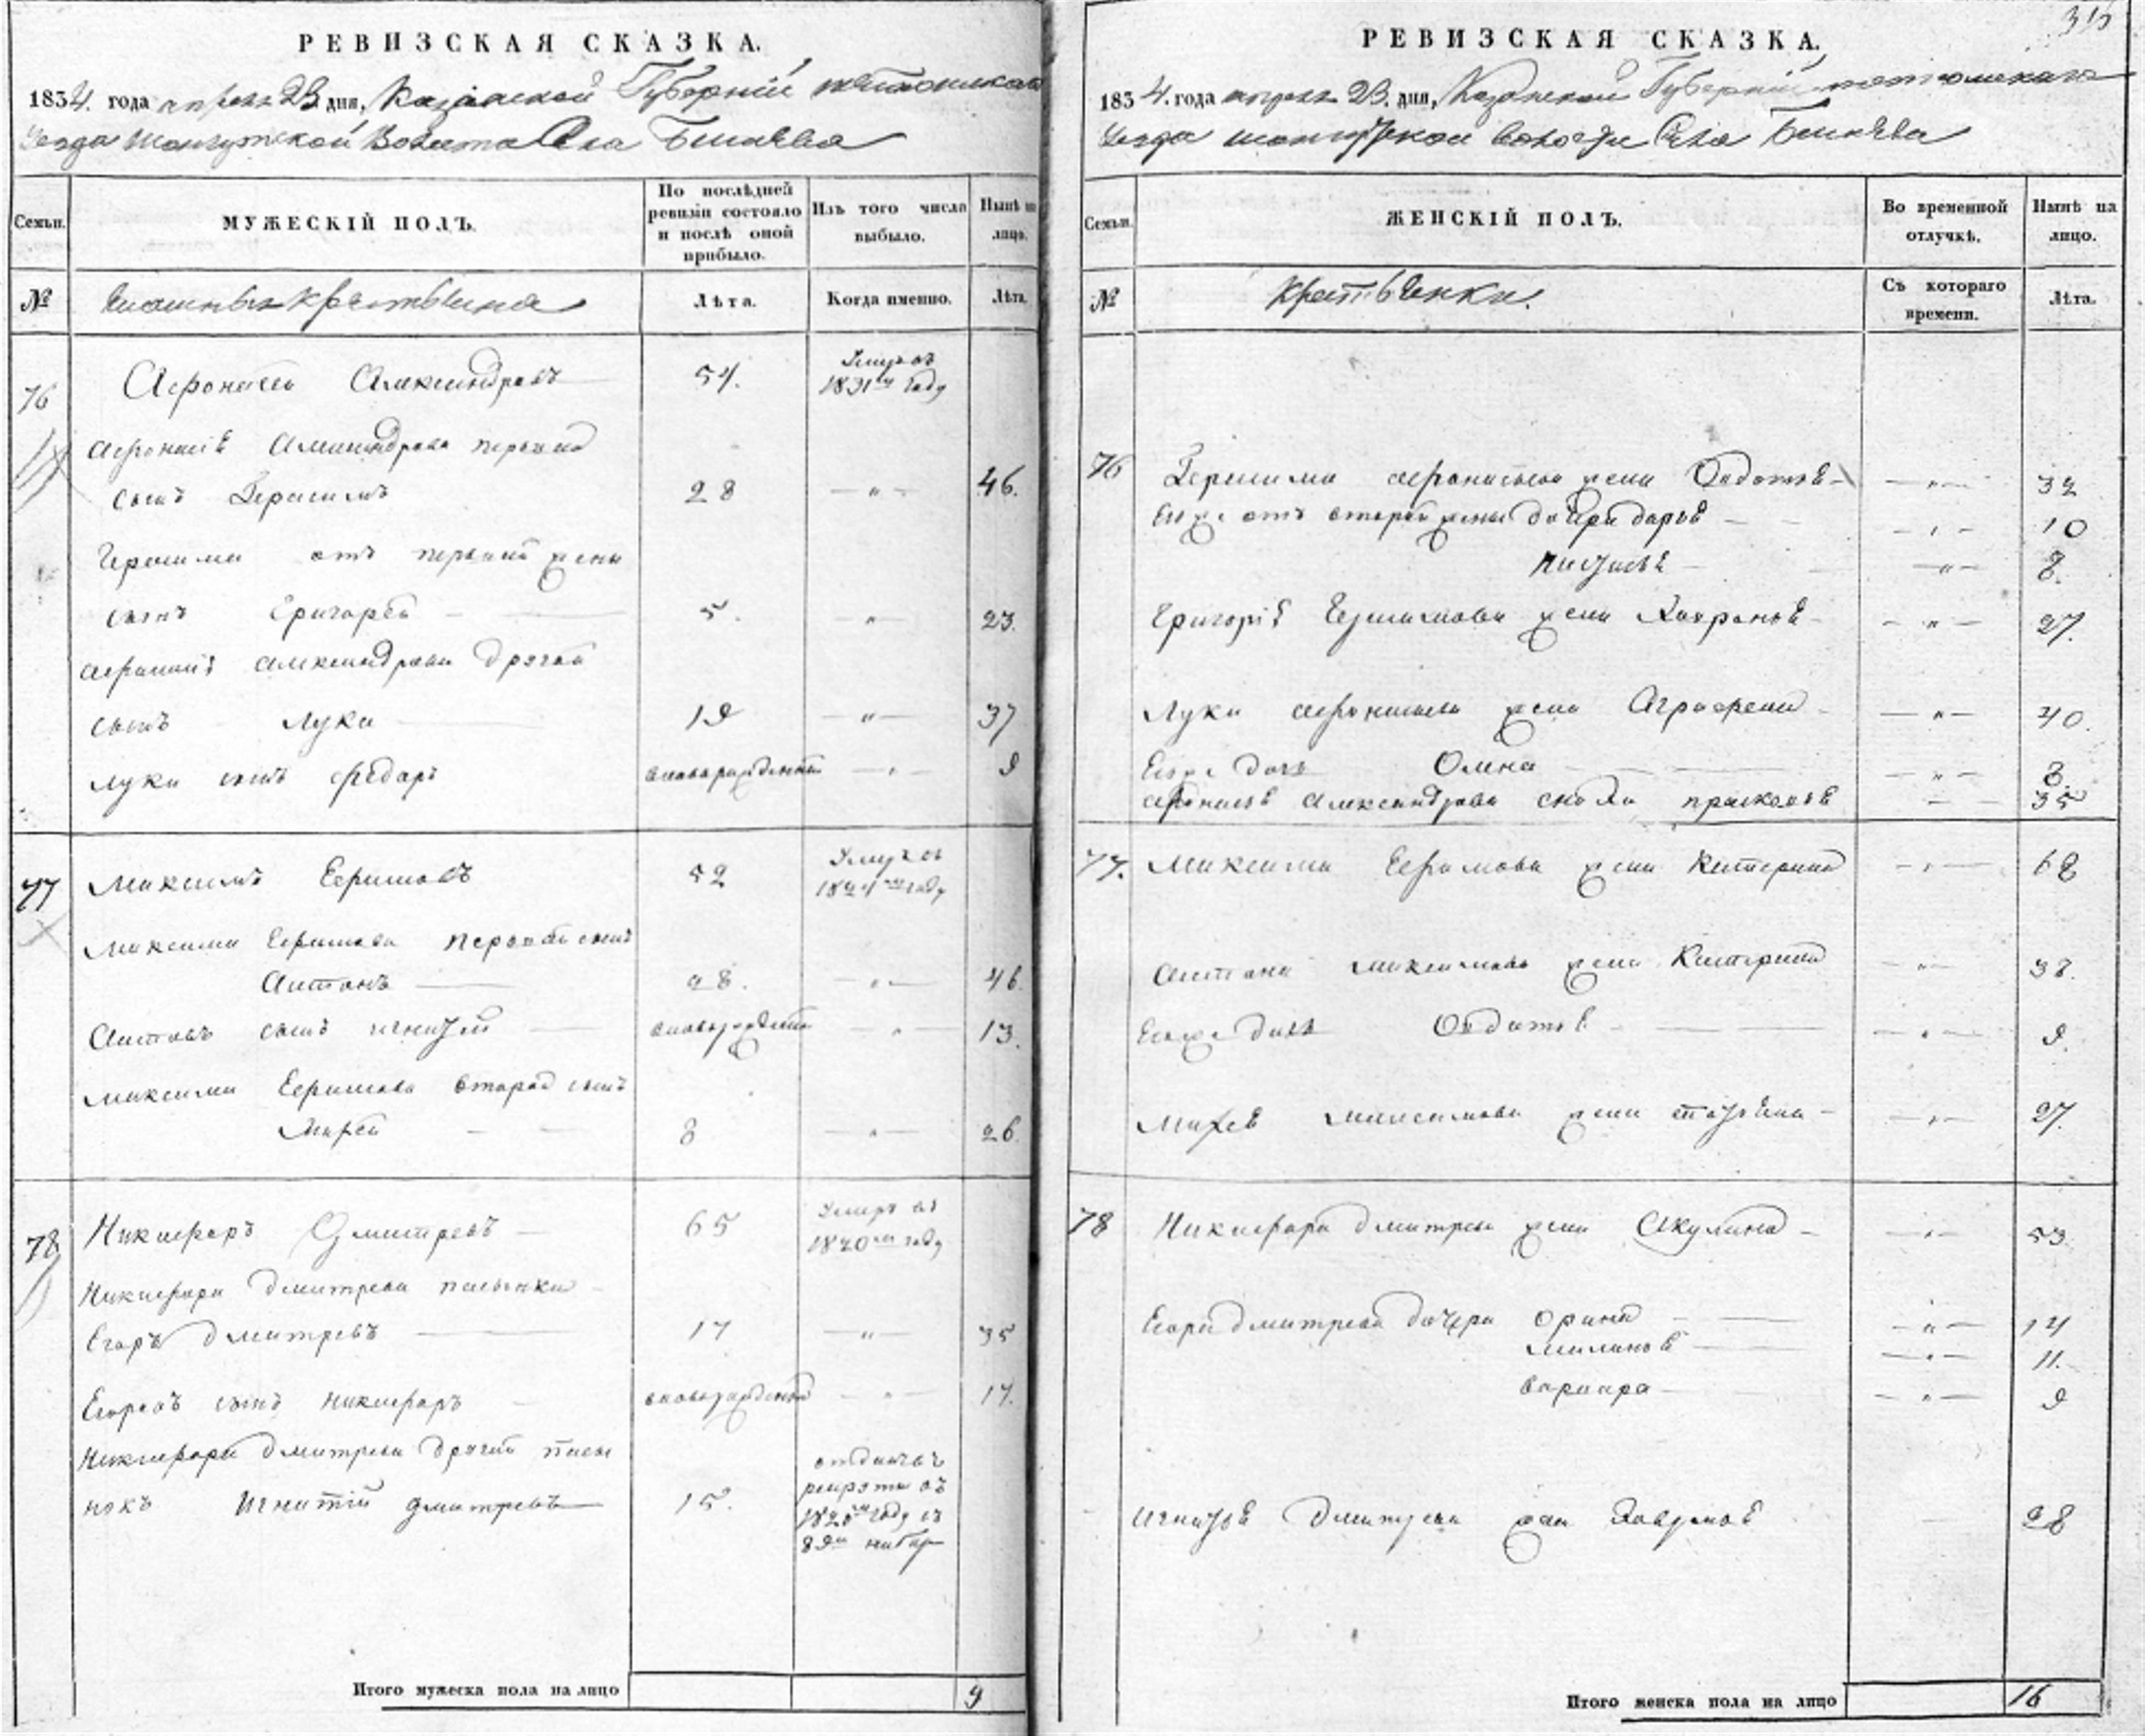 РЕВИЗСКАЯ СКАЗКА.
1834. года апреля 23. дня, Казанской Губернии
Уезда Волости Села
Семьи.
МУЖЕСКІЙ ПОЛЪ.
По послѣдней ревизіи состояло и послѣ оной прибыло.
Изъ того числа выбыло.
Нынѣ на лицо.
№
Лѣта.
Когда именно.
Лѣта.
76
Афонасей Александровъ 54. Умре въ 1831м году
Афонасiя Александрова первой
сынъ Герасимъ 28 — " — 46.
Герасима отъ первой жены
сынъ Григорей 5. " 23.
Афонасiя Александрова другой
сынъ Лука 19 — " — 37
Луки сынъ Федоръ вновьрожденной — " — 9
77
Максимъ Ефимовъ 52 Умре въ 1824м году
Максима Ефимова первой сынъ
Антонъ 28. — " — 46.
Антоновъ сынъ Игнатей вновьрожденной " 13.
Максима Ефимова второй сынъ
8 — " — 26.
78
Никифоръ Дмитревъ 65 Умре въ 1820м году
Никифора Дмитрева пасынки
Егоръ Дмитревъ 17 — " — 35
Егоровъ сынъ Никифоръ вновьрожденной — " — 17.
Никифора Дмитрева другой пасы
нокъ Игнатiй Дмитревъ 15. отданъ въ рекруты въ 1820м году
Итого мужеска пола на лицо 9
РЕВИЗСКАЯ СКАЗКА.
1834. года апреля 23. дня, Казанской Губернии
Уезда волости Села
Семьи.
ЖЕНСКІЙ ПОЛЪ.
Во временной отлучкѣ.
Нынѣ на лицо.
№
Крестьянки.
Съ котораго времени.
Лѣта.
76 Герасима Афонасьева жена Овдотья — " — 32
Ево же отъ второй жены дочери Дарья — " — 10
Настасья — " — 8.
Григорiя Герасимова жена — " — 27.
Луки Афонасьева жена Аграфена — " — 40.
Ево же дочь — " — 8.
Афонасья Александрова сноха Прасковья — 35
77. Максима Ефимова жена Катерина — " — 68
Антона Максимова жена Катерина — " — 38.
Ево же дочь Овдотья — " — 9.
Максимова жена Татьяна — " — 27.
78 Никифора Дмитрева жена Акулина — " — 53
Егора Дмитрева дочери Орина — " — 14
Маланья — " — 11.
Варвара — " — 9
Игнатья Дмитрева жена 28
Итого женска пола на лицо 16